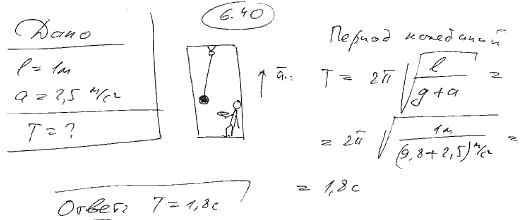 6.40
Дано
l = 1м
a = 2,5 м/с²
T = ?
a̅:
Период колебаний
T = 2π √(l / (g + a)) =
= 2π √(1м / (9,8 + 2,5) м/с²) =
= 1,8 с
Ответ: T = 1,8 с